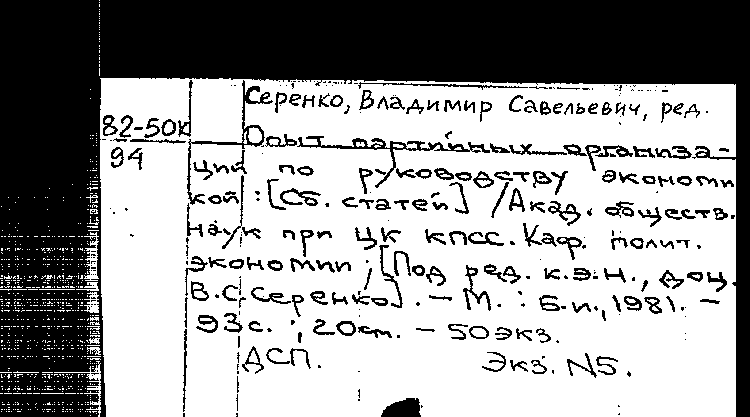 Серенко, Владимир Савельевич, ред.
82-50к
Опыт партийных организа-
94
ций по руководству экономи
кой : [Сб. статей] / Акад. обществ.
наук при ЦК КПСС. Каф. полит.
экономии ; [Под ред. к.э.н., доц.
В.С. Серенко]. – М. : Б.и., 1981. –
93с. ; 20см. – 50экз.
ДСП. Экз. N5.